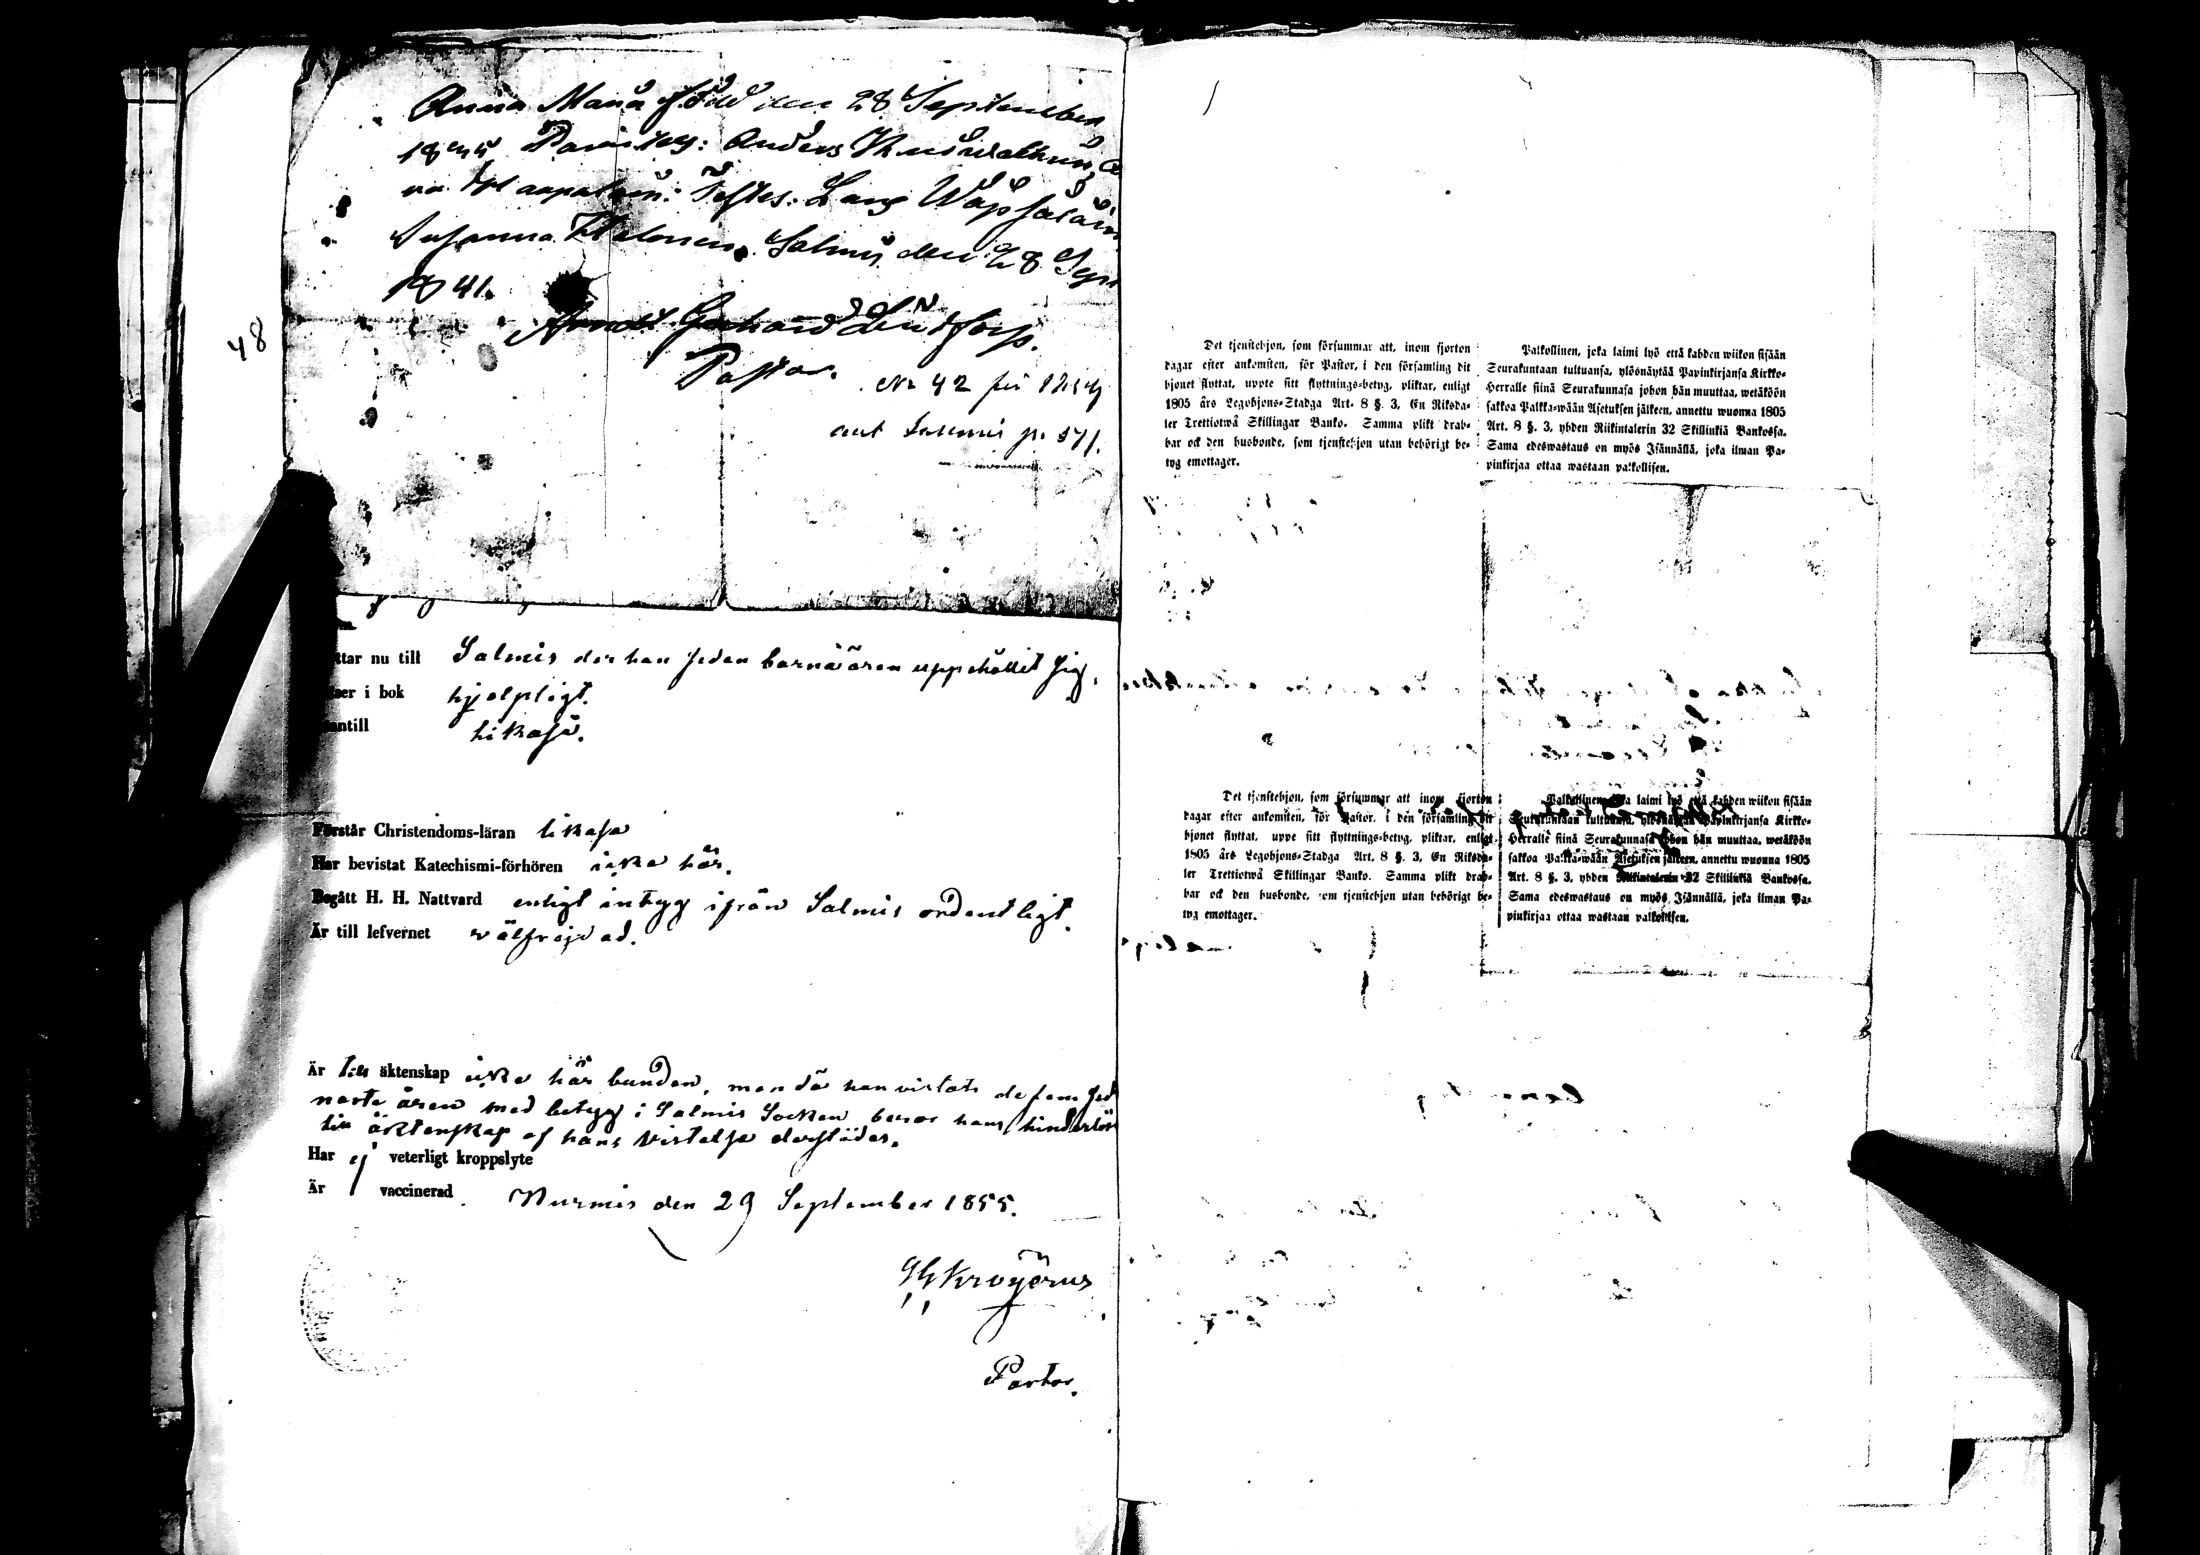 Anna Maria född den 28 September
Testes: Lars
Susanna Salmis den 28 Sept
1841.
Pastor.
No 42 för 1854
48
ttar nu till Salmis der han sedan barnaåren uppehållit sig.
ser i bok hjelpligt.
antill likaså.
Förstår Christendoms-läran likaså
Har bevistat Katechismi-förhören icke här.
Begått H. H. Nattvard enligt intyg ifrån Salmis ordentligt.
Är till lefvernet välfrejdad.
Är till äktenskap icke här bunden, men då han vistats de fem sed
naste åren med betyg i Salmis Socken beror hans hinderlös
till äktenskap af hans vistelse derstädes.
Har ej veterligt kroppslyte
Är vaccinerad. Nurmis den 29 September 1855.
Pastor.
Det tjenstehjon, som försummar att, inom fjorton
dagar efter ankomsten, för Pastor, i den församling dit
hjonet flyttat, uppte sitt flyttnings-betyg, pliktar, enligt
1805 års Legohjons-Stadga Art. 8 §. 3, En Riksda-
ler Trettiotwå Skillingar Banko. Samma plikt drab-
bar ock den husbonde, som tjenstehjon utan behörigt be-
tyg emottager.
Palkollinen, joka laimi lyö että kahden wiikon sisään
Seurakuntaan tultuansa, ylösnäytää Papinkirjansa Kirkko-
Herralle siinä Seurakunnasa johon hän muuttaa, wetäköön
sakkoa Palkka-wään Asetuksen jälkeen, annettu wuonna 1805
Art. 8 §. 3, yhden Riikintalerin 32 Skillinkiä Bankossa.
Sama edeswastaus on myös Isännällä, joka ilman Pa-
pinkirjaa ottaa wastaan palkollisen.
Det tjenstehjon, som försummar att inom fjorton
dagar efter ankomsten, för Pastor, i den församling dit
hjonet flyttat, uppe sitt flyttnings-betyg, pliktar, enligt
1805 års Legohjons-Stadga Art. 8 §. 3, En Riksda-
ler Trettiotwå Skillingar Banko. Samma plikt drab-
bar ock den husbonde, som tjenstehjon utan behörigt be-
tyg emottager.
Palkollinen, joka laimi lyö että kahden wiikon sisään
Seurakuntaan tultuansa, ylösnäytää Papinkirjansa Kirkko-
Herralle siinä Seurakunnasa johon hän muuttaa, wetäköön
sakkoa Palkka-wään Asetuksen jälkeen, annettu wuonna 1805
Art. 8 §. 3, yhden Riikintalerin 32 Skillinkiä Bankossa.
Sama edeswastaus on myös Isännällä, joka ilman Pa-
pinkirjaa ottaa wastaan palkollisen.